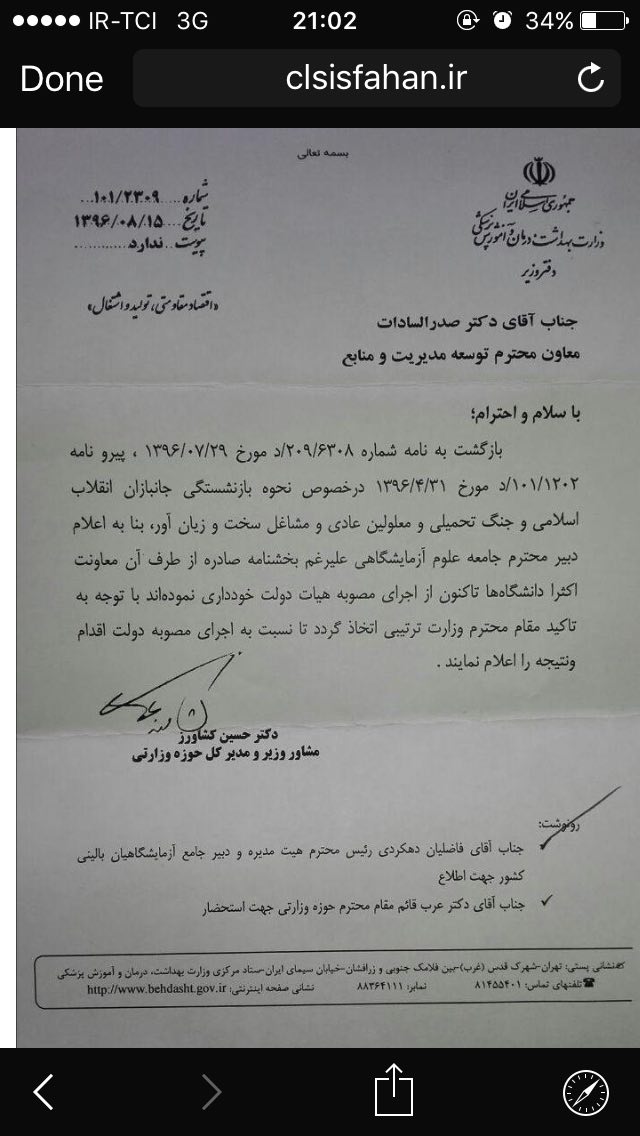 IR-TCI 3G 21:02 34%
Done clsisfahan.ir
بسمه تعالی
جمهوری اسلامی ایران
وزارت بهداشت، درمان و آموزش پزشکی
دفتر وزیر
شماره....۱۰۱/۲۳۰۹...
تاریخ....۱۳۹۶/۰۸/۱۵
پیوست..ندارد............
«اقتصاد مقاومتی، تولید و اشتغال»
جناب آقای دکتر صدرالسادات
معاون محترم توسعه مدیریت و منابع
با سلام و احترام؛
بازگشت به نامه شماره ۲۰۹/۶۳۰۸/د مورخ ۱۳۹۶/۰۷/۲۹ ، پیرو نامه
۱۰۱/۱۲۰۲/د مورخ ۱۳۹۶/۴/۳۱ درخصوص نحوه بازنشستگی جانبازان انقلاب
اسلامی و جنگ تحمیلی و معلولین عادی و مشاغل سخت و زیان آور، بنا به اعلام
دبیر محترم جامعه علوم آزمایشگاهی علیرغم بخشنامه صادره از طرف آن معاونت
اکثرا دانشگاه‌ها تاکنون از اجرای مصوبه هیات دولت خودداری نموده‌اند با توجه به
تاکید مقام محترم وزارت ترتیبی اتخاذ گردد تا نسبت به اجرای مصوبه دولت اقدام
ونتیجه را اعلام نمایند .
دکتر حسین کشاورز
مشاور وزیر و مدیر کل حوزه وزارتی
رونوشت:
جناب آقای فاضلیان دهکردی رئیس محترم هیت مدیره و دبیر جامع آزمایشگاهیان بالینی
کشور جهت اطلاع
جناب آقای دکتر عرب قائم مقام محترم حوزه وزارتی جهت استحضار
نشانی پستی: تهران-شهرک قدس (غرب)-بین فلامک جنوبی و زرافشان-خیابان سیمای ایران-ستاد مرکزی وزارت بهداشت، درمان و آموزش پزشکی
تلفنهای تماس: ۸۱۴۵۵۴۰۱ نمابر: ۸۸۳۶۴۱۱۱ نشانی صفحه اینترنتی: http://www.behdasht.gov.ir